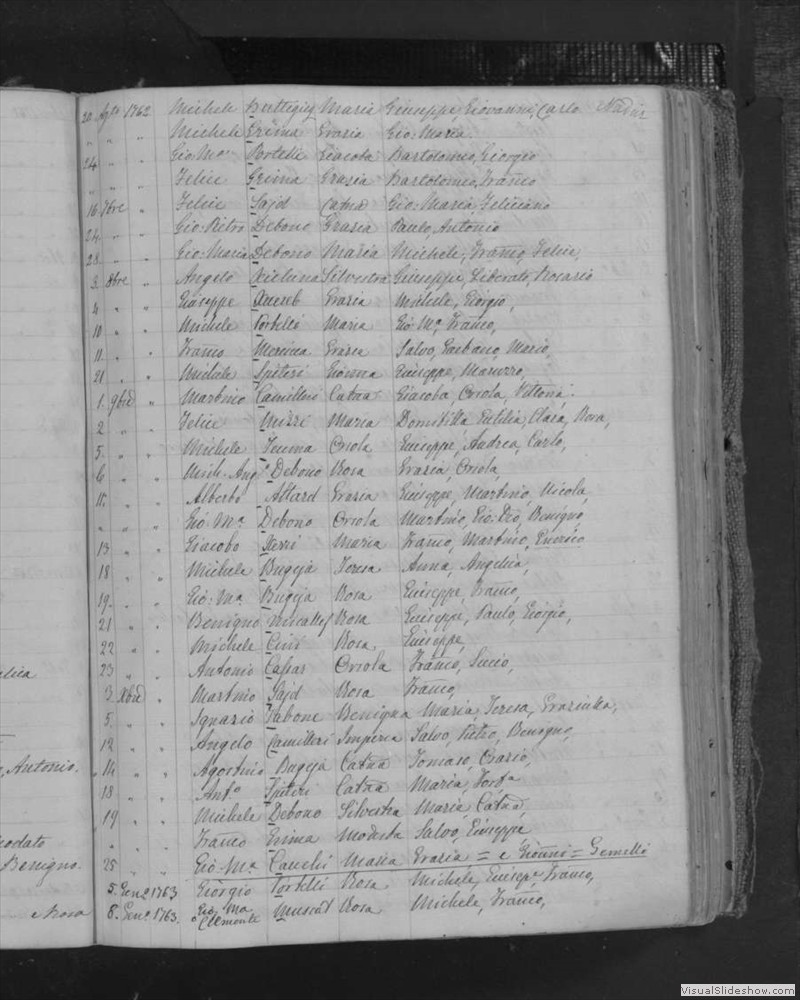 20 Agto 1762 Michele Buttigieg Maria Giuseppe, Giovanni, Carlo Nadur
" " " Michele Grima Grazia Gio: Maria
24 " " Gio: Ma Portelli Giacoba Bartolomeo, Giorgio
" " " Felice Grima Grazia Bartolomeo, Franco
16 7bre " Felice Said Catna Gio: Maria, Feliciano
24 " " Gio: Pietro Debono Grazia Paulo, Antonio
28 " " Gio: Maria Debono Maria Michele, Franco, Felice,
3 8bre " Angelo Xicluna Silvestra Giuseppe, Liberato, Rosario
4 " " Giuseppe Axereb Grazia Michele, Giorgio,
10 " " Michele Portelli Maria Gio: Ma, Franco,
11 " " Franco Mercieca Grazia Salvo, Gaetano, Mario,
21 " " Michele Spiteri Gioanna Giuseppe,
1 9bre " Martino Camilleri Catna Giacoba, Orsola, Vittoria
2 " " Felice Mizzi Maria Domitilla Clara, Rosa,
5 " " Michele Teuma Orsola Giuseppe, Andrea, Carlo,
6 " " Mich. Ang. Debono Rosa Grazia, Orsola,
11 " " Alberto Attard Grazia Giuseppe, Martino, Nicola,
" " " Gio: Ma Debono Orsola Martino, Gio: Benigno,
13 " " Giacobo Xerri Maria Franco, Martino,
18 " " Michele Bugeja Teresa Anna, Angelica,
19 " " Gio: Ma Bugeja Rosa Giuseppe, Franco,
21 " " Benigno Micallef Rosa Giuseppe, Paulo, Giorgio,
22 " " Michele Cini Rosa Giuseppe,
elica
23 " " Antonio Cassar Orsola Franco, Lucio,
3 Xbre " Martino Said Rosa Franco,
5 " " Ignazio Tabone Benigna Maria, Teresa, Graziulla,
12 " " Angelo Camilleri Imperia Salvo, Pietro, Benigno,
, Antonio.
14 " " Agostino Bugeja Catna Tomaso, Grazio,
18 " " Anto Spiteri Catna Maria,
19 " " Michele Debono Silvestra Maria Catna,
eodato
" " " Franco Grima Modesta Salvo, Giuseppe
Benigno.
25 " " Gio: Ma Cauchi Maria Grazia = e Gioanni = Gemelli
5 Geno 1763 Giorgio Portelli Rosa Michele, Giusepe, Franco,
e Rosa
8 Geno 1763. Gio Ma o Clemente Muscat Rosa Michele, Franco,
VisualSlideshow.com